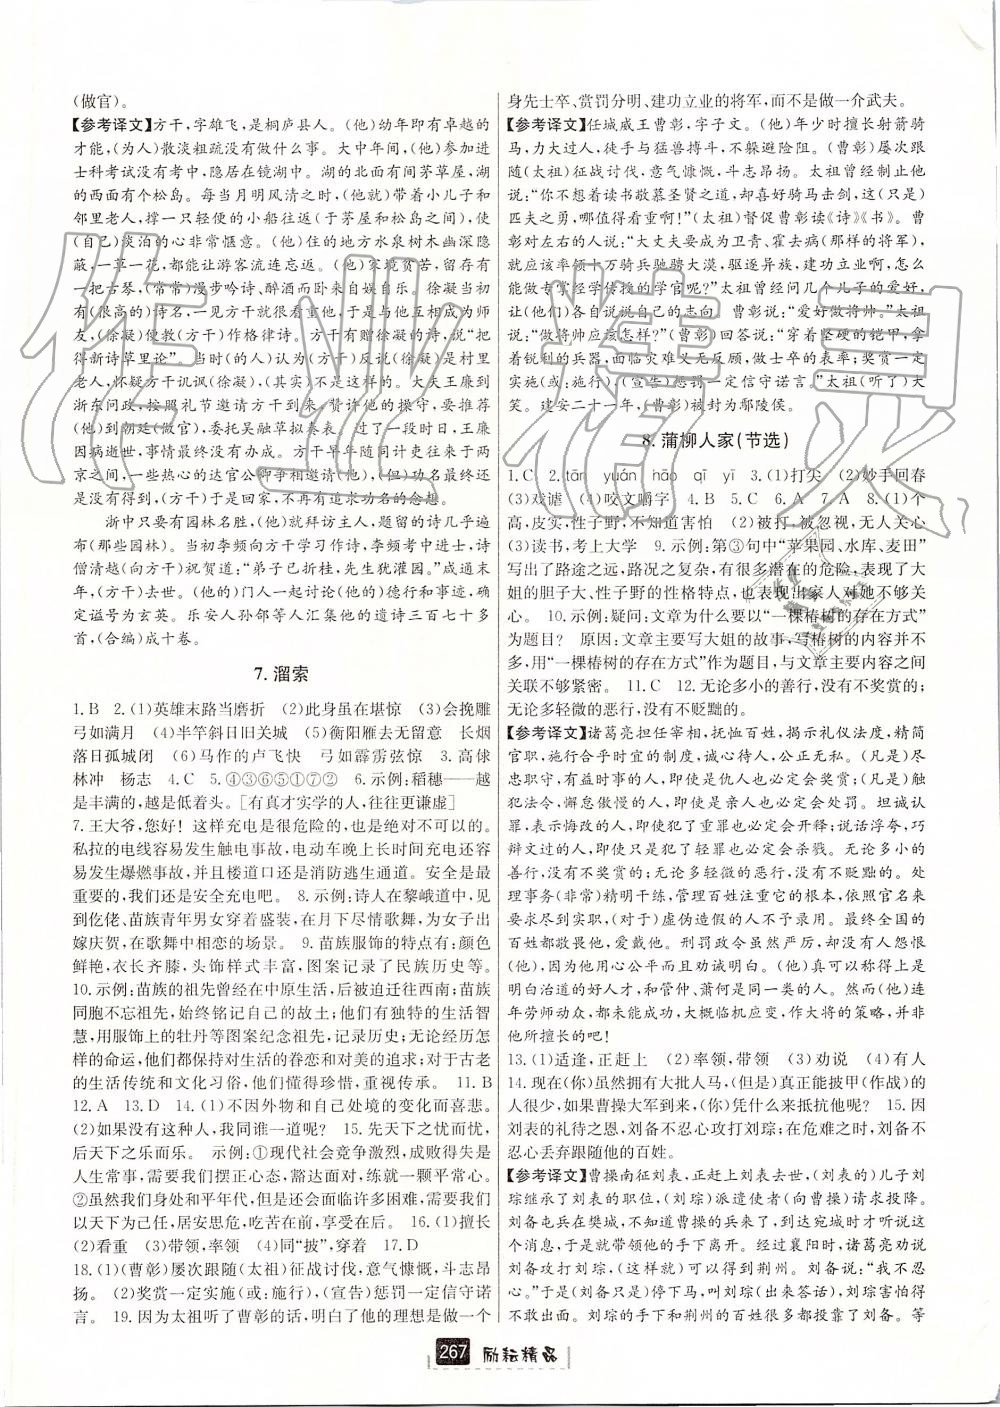 (做官)。
【参考译文】方干,字雄飞,是桐庐县人。(他)幼年即有卓越的
才能,(为人)散淡粗疏没有做什么事。大中年间,(他)参加进
士科考试没有考中,隐居在镜湖中。湖的北面有间茅草屋,湖
的西面有个松岛。每当月明风清之时,(他)就带着小儿子和
邻里老人,撑一只轻便的小船往返(于茅屋和松岛之间),使
(自己)淡泊的心非常惬意。(他)住的地方水泉树木幽深隐
蔽,一草一花,都能让游客流连忘返。(他)家境贫苦,留有
一把古琴,(常常)漫步吟诗、醉酒而卧以此来自娱自乐。徐凝当初有
(很高的)诗名,一见方干就很器重他,与他互相成为师
友,(徐凝)便教(方干)作格律诗。方干有赠徐凝的诗,说“把
得新诗草里论”。当时的(人)反语(方干)反说(徐凝)是村里
老人,怀疑方干讥讽(徐凝),(其实)不是这样的。大夫王廉到
浙东问政,按照礼节邀请方干到来,赞许他的操守,要推荐
(他)到朝廷(做官),委托吴融草拟奏表。过了一段时间,王廉
因病逝世,事情最终没有办成。方干早年随同计吏往来两京
之间,一些热心的达官公卿争相邀请(他),(但)功名最终还是
没有成就,于是(方干)回来不再有追求功名的念想。
浙中只要有园林名胜,(他)就拜访主人,题留的诗几乎遍
布(那些园林)。当初李频向方干学习作诗,李频考中进士,诗
僧清越(向方干)祝贺道:“弟子已折桂,先生犹灌园。”咸通末
年,(方干)去世。(他的)门人一起讨论(他的)德行和事迹,确
实谥号为玄英。乐安人孙郃等人汇集他的遗诗三百七十多
首,(合编)成十卷。
7. 溜索
1.B 2.(1)英雄末路当磨折 (2)此身虽在堪惊 (3)会挽雕
弓如满月 (4)半竿斜日旧关城 (5)衡阳雁去无留意 长烟
落日孤城闭 (6)马作的卢飞快 弓如霹雳弦惊 3.高俅
林冲 杨志 4.C 5.④③⑥⑤①⑦② 6.示例:稻穗——越
是丰满的,越是低着头。[有真才实学的人,往往更谦虚]
7.王大爷,您好!这样充电是很危险的,也是绝对不可以的。
私拉的电线容易发生触电事故,电动车晚上长时间充电还容
易发生爆燃事故,并且楼道口还是消防逃生通道。安全是最
重要的,您还是去安全充电吧。 8.示例:诗人在黎峨道中,见
到仡佬、苗族青年男女穿着盛装,在月下尽情歌舞,为女子出
嫁庆贺,在歌舞中相恋的场景。 9.苗族服饰的特点有:颜色
鲜艳,衣长齐膝,头饰样式丰富,图案记录了民族历史等。
10.示例:苗族的祖先曾经在中原生活,后被迫迁往西南;苗族
同胞不忘祖先,始终铭记自己的故土;他们有独特的生活智
慧,用服饰上的牡丹等图案纪念祖先,记录历史;无论经历怎
样的命运,他们都保持对生活的眷恋和对美的追求;对于古老
的生活传统和文化习俗,他们懂得珍惜,重视传承。 11.B
12.A 13.D 14.(1)不因外物和自己处境的变化而喜悲。
(2)如果没有这种人,我同谁一道呢? 15.先天下之忧而忧,
后天下之乐而乐。 示例:①现代社会竞争激烈,成败得失是
人生常事,需要我们摆正心态,豁达面对,练就一颗平常心。
②虽然我们身处和平年代,但是还会面临许多困难,需要我们
以天下为己任,居安思危,吃苦在前,享受在后。 16.(1)擅长
(2)看重 (3)带领,率领 (4)同“披”,穿着 17.D
18.(1)(曹彰)屡次跟随(太祖)征战讨伐,意气慷慨,斗志昂
扬。 (2)奖赏一定实施(或:施行),(宣告)惩罚一定信守诺
言。 19.因为太祖听了曹彰的话,明白了他的理想是做一个
身先士卒、赏罚分明、建功立业的将军,而不是做一介武夫。
【参考译文】任城威王曹彰,字子文。(他)年少时擅长射箭骑
马,力大过人,徒手与猛兽搏斗,不躲避险阻。(曹彰)屡次跟
随(太祖)征战讨伐,意气慷慨,斗志昂扬。太祖曾经制止他
说:“你不想着读书敬慕圣贤之道,却喜好骑马击剑,这(只是)
匹夫之勇,哪值得看重啊!”(太祖)督促曹彰读《诗》《书》。曹
彰对左右的人说:“大丈夫要成为卫青、霍去病(那样的将军),
就应该率领十万骑兵驰骋大漠,驱逐异族,建功立业啊,怎么
能做专掌经学传授的学官呢?”太祖曾经问几个儿子的爱好,
让(他们)各自说说自己的志向。曹彰说:“爱好做将帅。”太祖
说:“做将帅应该怎样?”(曹彰)回答说:“穿着坚硬的铠甲,拿
着锐利的兵器,面临灾难义无反顾,做士卒的表率;奖赏一定
实施(或:施行),(宣告)惩罚一定信守诺言。”太祖(听了)大
笑。建安二十一年,(曹彰)被封为鄢陵侯。
8. 蒲柳人家(节选)
1.C 2.tān yuán hāo qī yī 3.(1)打尖 (2)妙手回春
(3)戏谑 (4)咬文嚼字 4.B 5.C 6.A 7.A 8.(1)个
高,皮实,性子野,不知道害怕 (2)被打,被忽视,无人关心
(3)读书,考上大学 9.示例:第③句中“苹果园、水库、麦田”
写出了路途之远,路况之复杂,有很多潜在的危险,表现了大
姐的胆子大、性子野的性格特点,也表现出家人对她不够关
心。 10.示例:疑问:文章为什么要以“一棵椿树的存在方式”
为题目? 原因:文章主要写大姐的故事,写椿树的内容并不
多,用“一棵椿树的存在方式”作为题目,与文章主要内容之间
关联不够紧密。 11.C 12.无论多小的善行,没有不奖赏的;
无论多轻微的恶行,没有不贬黜的。
【参考译文】诸葛亮担任宰相,抚恤百姓,揭示礼仪法度,精简
官职,施行合乎时宜的制度,诚心待人,公正无私。(凡是)尽
忠职守,有益时事的人,即使是仇人也必定会奖赏;(凡是)触
犯法令,懈怠傲慢的人,即使是亲人也必定会处罚。坦诚认
罪,表示悔改的人,即使犯了重罪也必定会开释;说话浮夸,巧
辩文过的人,即使只是犯轻罪也必定会杀戮。无论多小的
善行,没有不奖赏的;无论多轻微的恶行,没有不贬黜的。处
理事务(非常)精明干练,管理百姓注重它的根本,依照官名来
要求尽到实职,(对于)虚伪造假的人不予录用。最终全国的
百姓都敬畏他,爱戴他。刑罚政令虽然严厉,却没有人怨恨
(他),(因)他用心公平而且劝诫明白。(他)可以称得上是
明白治道的好人才,和管仲、萧何是同一类的人。然而(他)连
年劳师动众,都未能成功,大概临机应变,作大将的策略,并非
他所擅长的吧!
13.(1)适逢,正赶上 (2)率领,带领 (3)劝说 (4)有人
14.现在(你)虽然拥有大批人马,(但是)真正能披甲(作战)的
人很少,如果曹操大军到来,(你)凭什么来抵抗他呢? 15.因
刘表的礼待之恩,刘备不忍心攻打刘琮;在危难之时,刘备不
忍心丢弃跟随他的百姓。
【参考译文】曹操南征刘表,正赶上刘表去世,(刘表的)儿子刘
琮继承了刘表的职位,(刘琮)派遣使者(向曹操)请求投降。
刘备屯兵在樊城,不知道曹操的兵来了,到达宛城时才听说这
个消息,于是就带领他的手下离开。经过襄阳时,诸葛亮劝说
刘备攻打刘琮,(这样)就可以得到荆州。刘备说:“我不忍
心。”于是(刘备只是)停下马,叫刘琮(出来答话),刘琮害怕得
不敢出来。刘琮的手下和荆州的百姓很多都归附了刘备。等
267 励耘精品
作业精灵